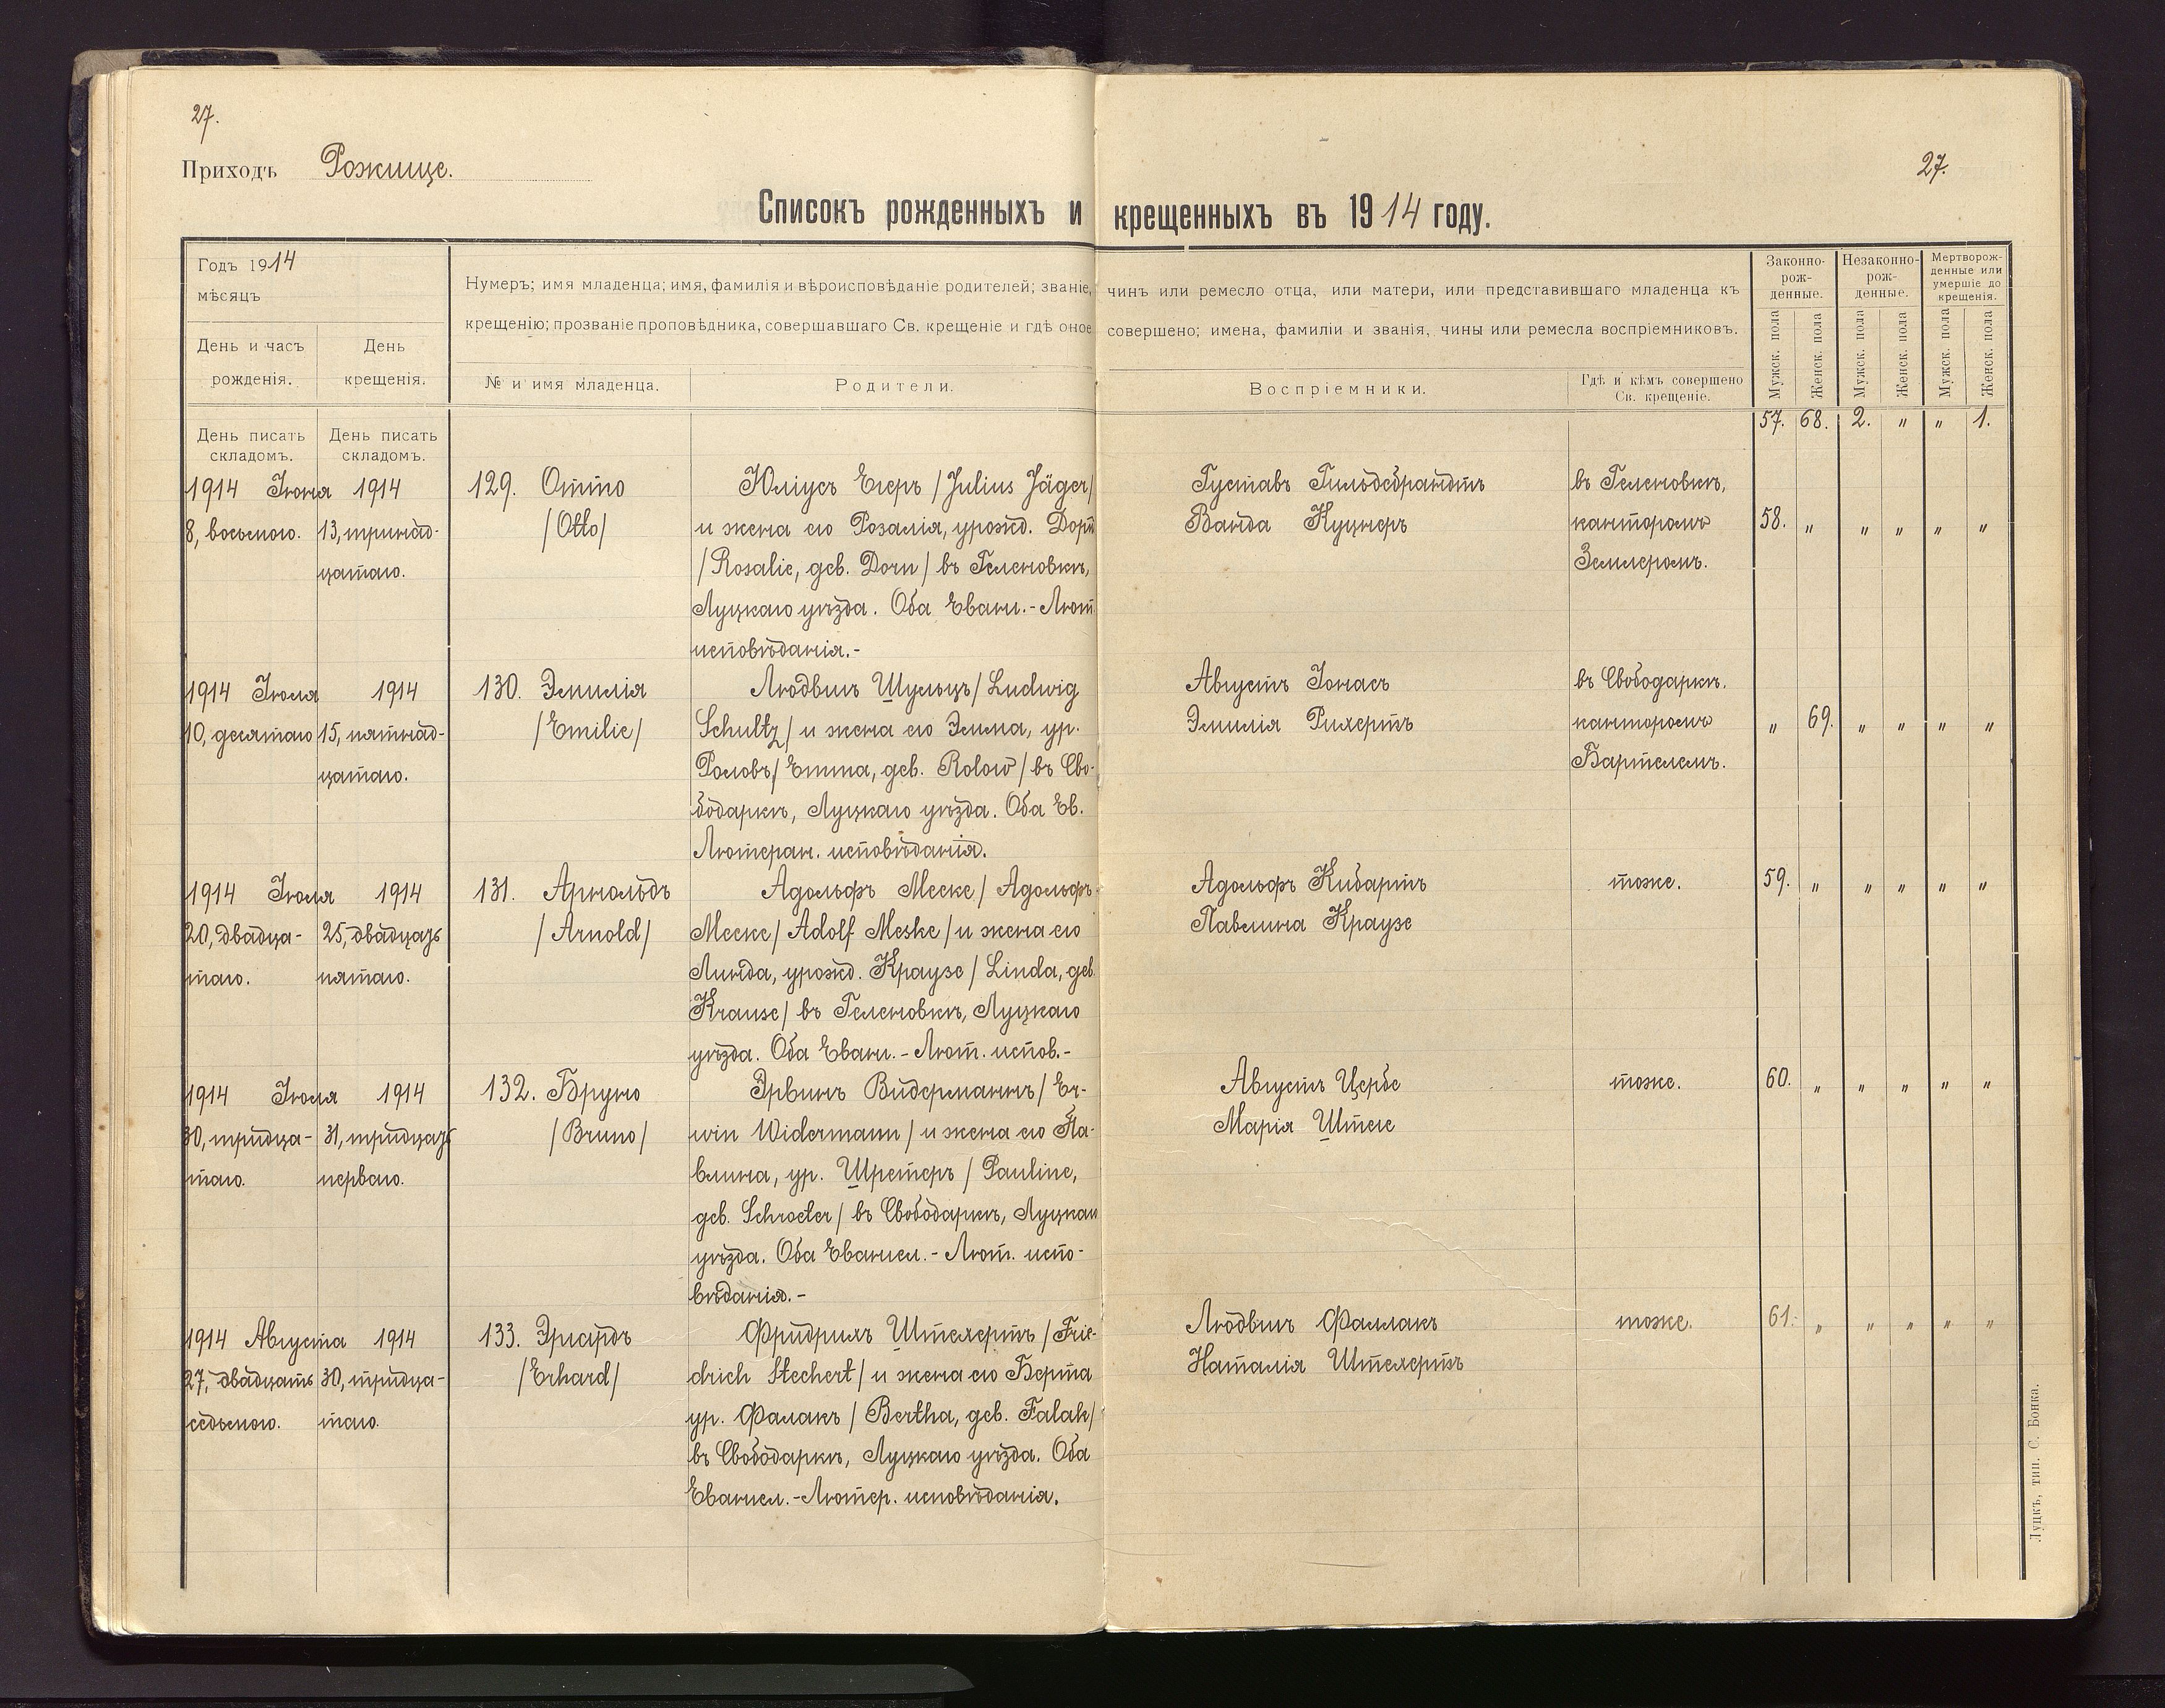 27.
27.
Приходъ Рожище.
Списокъ рожденныхъ и крещенныхъ въ 1914 году.
Годъ 1914
мѣсяцъ
День и часъ
рожденія.
День
крещенія.
Нумеръ; имя младенца; имя, фамилія и вѣроисповѣданіе родителей; званіе, чинъ или ремесло отца, или матери, или представившаго младенца къ
крещенію; прозваніе проповѣдника, совершавшаго Св. крещеніе и гдѣ оное совершено; имена, фамиліи и званія, чины или ремесла воспріемниковъ.
№ и имя младенца.
Родители.
Воспріемники.
Гдѣ и кѣмъ совершено
Св. крещеніе.
Законно-
рож-
денные.
Незаконно-
рож-
денные.
Мертворож-
денные или
умершіе до
крещенія.
Мужск. пола
Женск. пола
Мужск. пола
Женск. пола
Мужск. пола
Женск. пола
57. 68. 2. " " 1.
День писать
складомъ.
День писать
складомъ.
1914 Іюня
8, восьмого.
1914
13, тринад-
цатаго.
129. Отто
/Otto/
Юліусъ Егеръ /Julius Jäger/
и жена его Розалія, урожд. Дорн
/Rosalie, geb. Dorn/ въ Геленовкѣ,
Луцкаго уѣзда. Оба Еванг.-Лют.
исповѣданія.-
Густавъ Гильдебрандтъ
Ванда Куцнеръ
въ Геленовкѣ,
канторомъ
Землеромъ.
58. " " " " "
1914 Іюля
10, десятаго
1914
15, пятнад-
цатаго.
130. Эмилія
/Emilie/
Людвигъ Шульцъ /Ludwig
Schultz/ и жена его Эмма, ур.
Роловъ /Emma, geb. Rolow/ въ Сво-
бодаркѣ, Луцкаго уѣзда. Оба Ев.
Лютеран. исповѣданія.
Августъ Іонасъ
Эмилія Рихертъ
въ Свободаркѣ.
канторомъ
Бартелемъ.
" 69. " " " "
1914 Іюля
20, двадца-
таго.
1914
25, двадцать
пятаго.
131. Арнольдъ
/Arnold/
Адольфъ Меске / Адольфъ
Меске / Adolf Meske / и жена его
Линда, урожд. Краузе / Linda, geb.
Krause/ въ Геленовкѣ, Луцкаго
уѣзда. Оба Еванг.-Лют. испов.-
Адольфъ Кибартъ
Павлина Краузе
тоже.
59. " " " " "
1914 Іюля
30, тридца-
таго.
1914
31, тридцать
перваго.
132. Бруно
/Bruno/
Эрвинъ Видерманнъ / Er-
win Widermann / и жена его Па-
влина, ур. Шретеръ / Pauline,
geb. Schroeter/ въ Свободаркѣ, Луцкаго
уѣзда. Оба Евангел.-Лют. испо-
вѣданія.-
Августъ Цербе
Марія Штеге
тоже.
60. " " " " "
1914 Августа
27, двадцать
седьмого.
1914
30, тридца-
таго.
133. Эргардъ
/Erhard/
Фридрихъ Штехертъ / Frie-
drich Stechert / и жена его Берта
ур. Фалакъ / Bertha, geb. Falak/
въ Свободаркѣ, Луцкаго уѣзда. Оба
Евангел.-Лютер. исповѣданія.
Людвигъ Фаллакъ
Наталія Штехертъ
тоже.
61. " " " " "
Луцкъ, тип. С. Бонка.